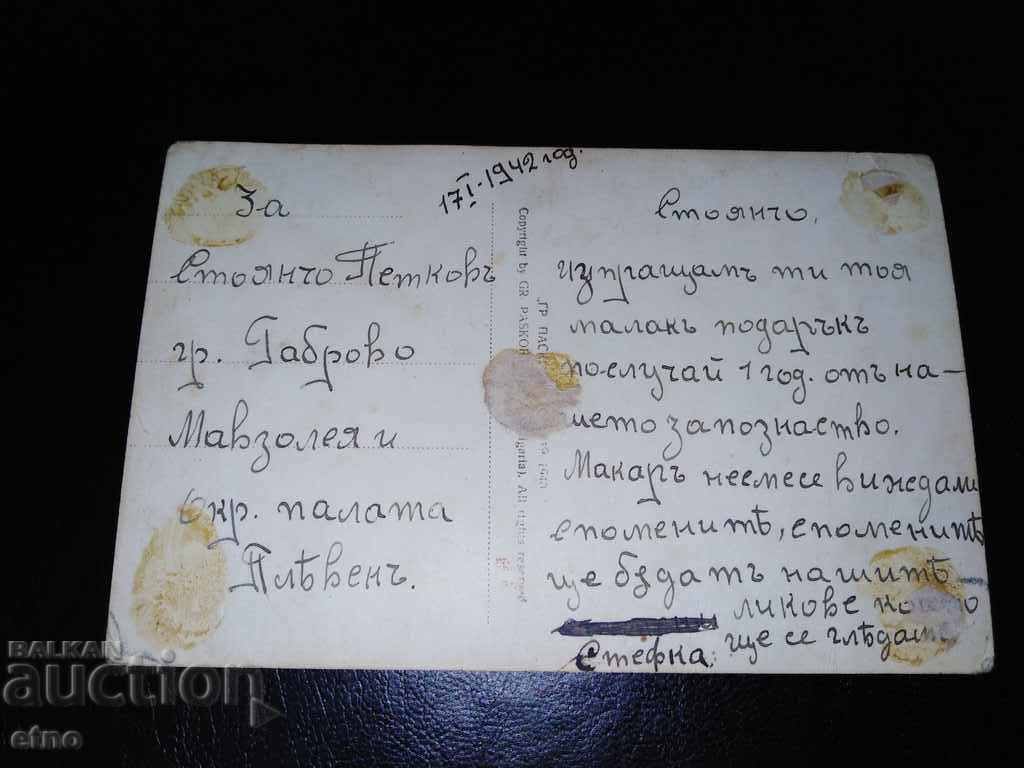 17 I - 1942 год.
З-а
Стоянчо Петковъ
гр. Габрово
Мавзолея и
Окр. палата
Плѣвенъ.
Copyright by GR. PASKOV
All rights reserved
Стоянчо,
Изпращамъ ти тоя
малакъ подаръкъ
по случай 1 год. отъ на-
шето запознаство.
Макаръ несмесе виждали
споменитѣ, споменитѣ
ще бѫдатъ нашитѣ
ликове
ще се глѣдатъ
Стефка.
BALKAN
auction
etno